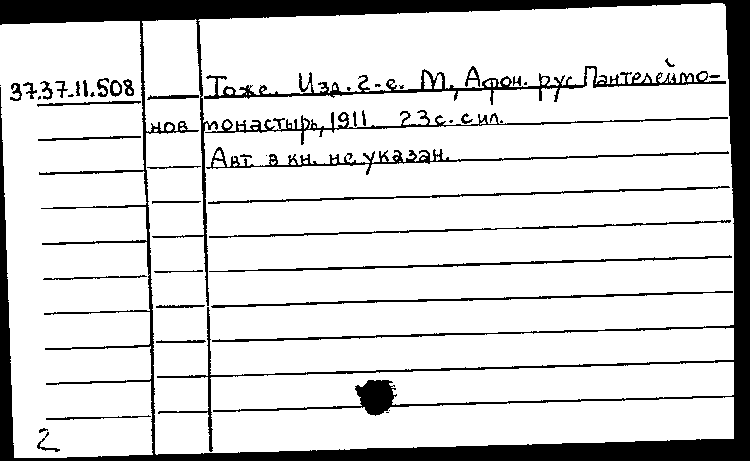 37.37.11.508 Тоже. Изд. 2-е. М., Афон. рус Пантелеймо-
нов монастырь, 1911. 23 с. с ил.
Авт. в кн. не указан.
2